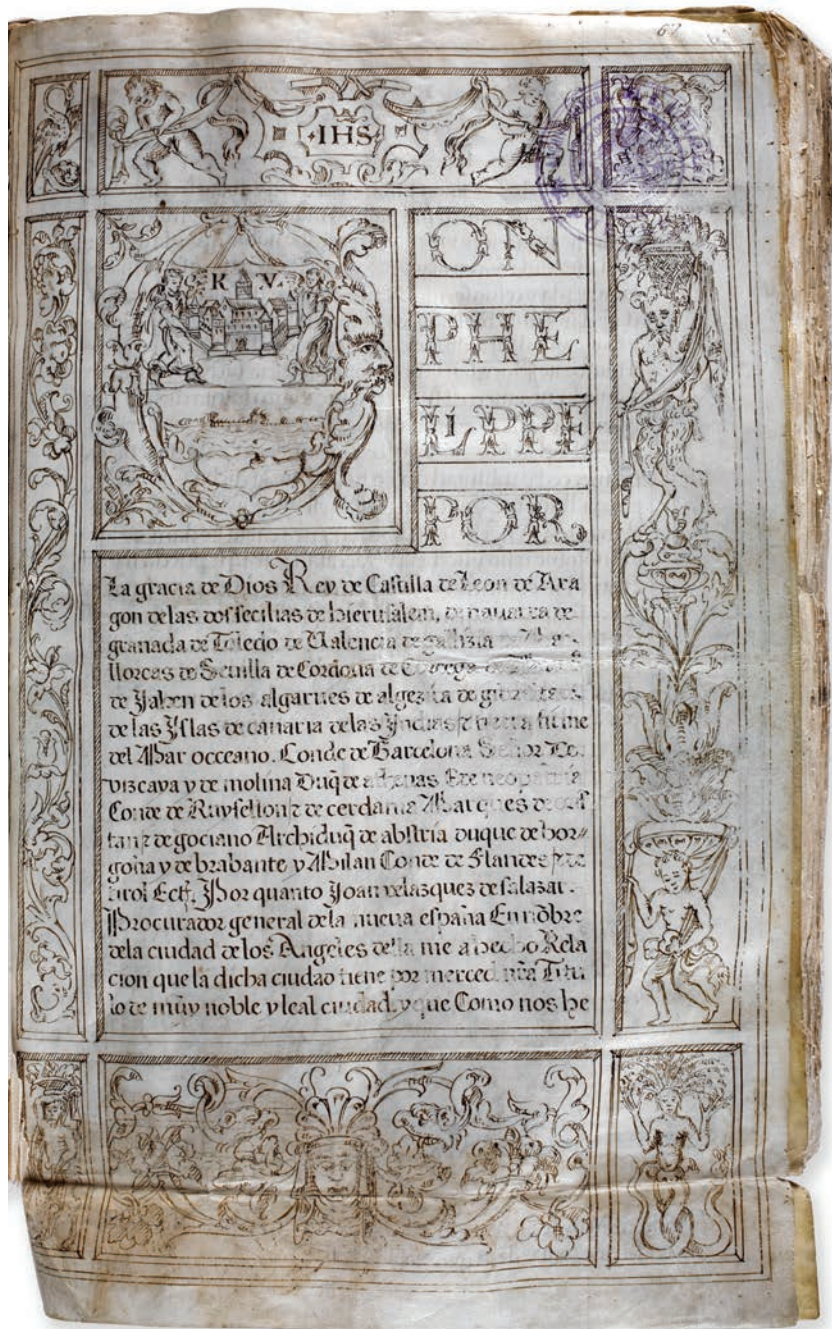 67
IHS
K V
ON
PHE
LIPPE
POR
La gracia de Dios Rey de Castilla de Leon de Ara
gon delas dos secilias de hierusalem, de nauarra de
granada de Toledo de Ualencia de gallizia de Ma
llorcas de Seuilla de Cordoua de Corcega de
de Jahen de los algarues de algezira de
de las Yslas de canaria delas Yndias tierra firme
del Mar occeano. Conde de Barcelona Señor De
vizcaya y de molina Duq̃ de athenas neopatria
Conde de Ruysellon z de cerdania Marques de oris
tan z de gociano Archiduq̃ de abstria duque de bor
goña y de brabante y Milan Conde de Flandes
tirol Ectῖ. Por quanto Joan velazquez de salazar.
Procurador general dela nueua españa En nõbre
dela ciudad delos Angeles della me a hecho Rela
cion que la dicha ciudad tiene por merced nr̃a Titu
lo de muy noble y leal ciudad. y que Como nos he